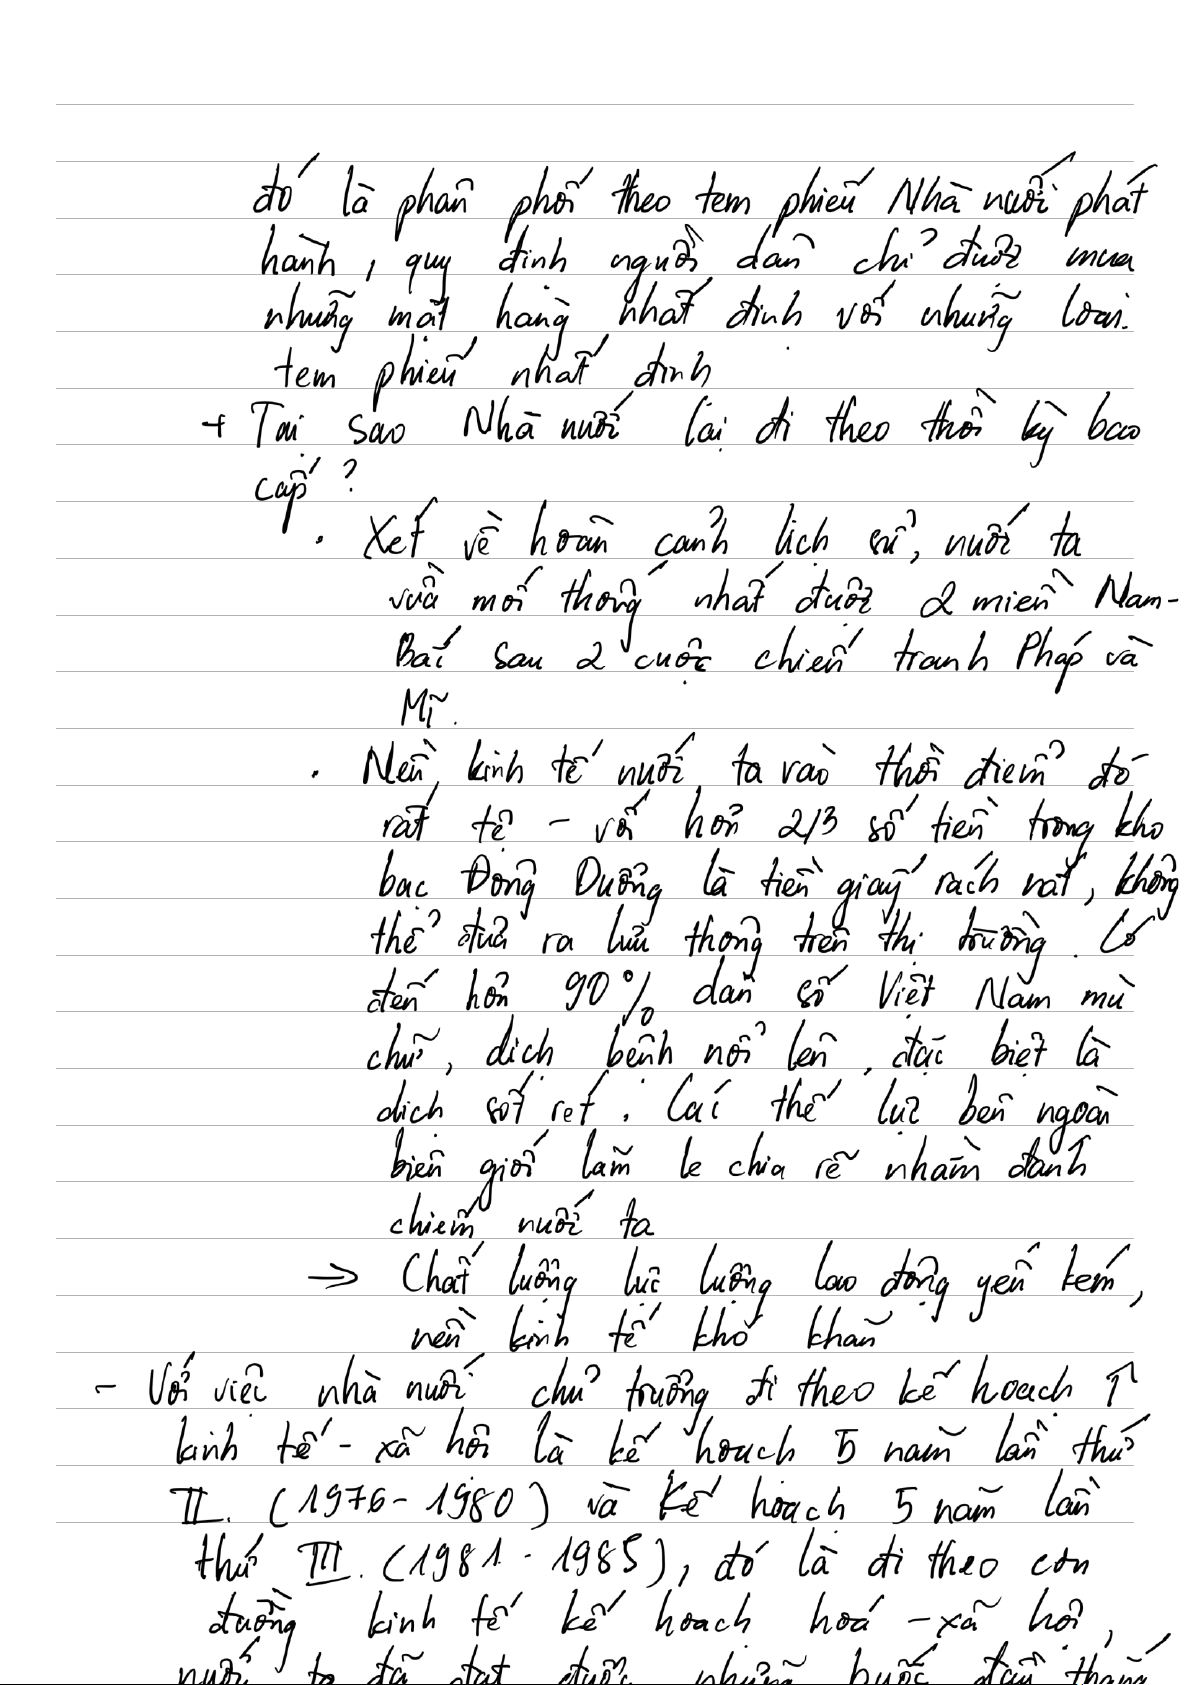 đó là phân phối theo tem phiếu Nhà nước phát
hành, quy định người dân chỉ được mua
những mặt hàng nhất định với những loại
tem phiếu nhất định
+ Tại sao Nhà nước lại đi theo thời kỳ bao
cấp ?
. Xét về hoàn cảnh lịch sử, nước ta
vừa mới thống nhất được 2 miền Nam-
Bắc sau 2 cuộc chiến tranh Pháp và
Mĩ.
. Nền kinh tế nước ta vào thời điểm đó
rất tệ - với hơn 2/3 số tiền trong kho
bạc Đông Dương là tiền giấy rách nát, không
thể đưa ra lưu thông trên thị trường. Có
đến hơn 90% dân số Việt Nam mù
chữ, dịch bệnh nổi lên, đặc biệt là
dịch sốt rét. Các thế lực bên ngoài
biên giới lăm le chia rẽ nhằm đánh
chiếm nước ta
⇒ Chất lượng lực lượng lao động yếu kém,
nền kinh tế khó khăn
- Với việc nhà nước chủ trương đi theo kế hoạch ↑
kinh tế - xã hội là kế hoạch 5 năm lần thứ
II. (1976 - 1980) và kế hoạch 5 năm lần
thứ III. (1981 - 1985), đó là đi theo con
đường kinh tế kế hoạch hoá - xã hội,
nước ta đã đạt được những bước đầu thắng